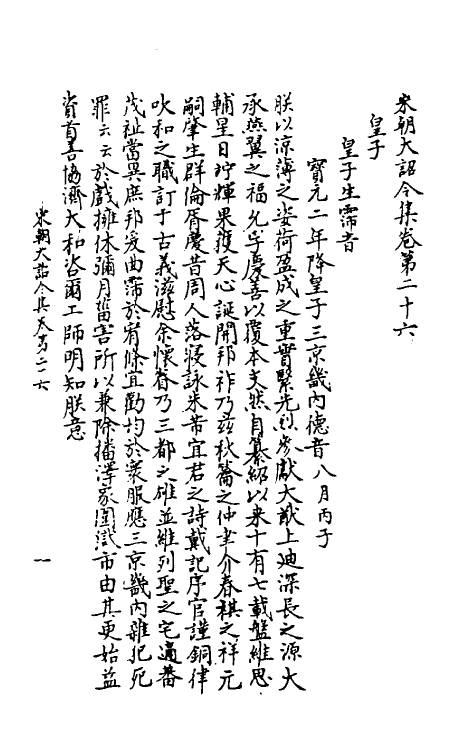 宋朝大詔令集卷第二十六
皇子
皇子生霈音
寶元二年降皇子三京畿內德音八月丙子
朕以涼薄之姿荷盈成之重實繄先烈參獻大猷上迪深長之源大
承燕翼之福允孚慶善以覆本支然自纂紹以來十有七載盤維思
輔星日竚輝果獲天心誕開邦祚乃茲秋籥之仲聿介春祺之祥元
嗣肇生群倫胥慶昔周人落寢詠朱芾宜君之詩戴記序官謹銅律
吹和之職訂于古義滋慰余懷眷乃三都之雄並維列聖之宅適蕃
茂祉當異庶邦爰曲霈於宥條宜勸均於衆服應三京畿內雜犯死
罪云云於戲擁休彌月眚害所以兼除播澤家圜獄市由其更始益
資首善協濟大和咨爾工師明知朕意
宋朝大詔令集卷第二十六
一